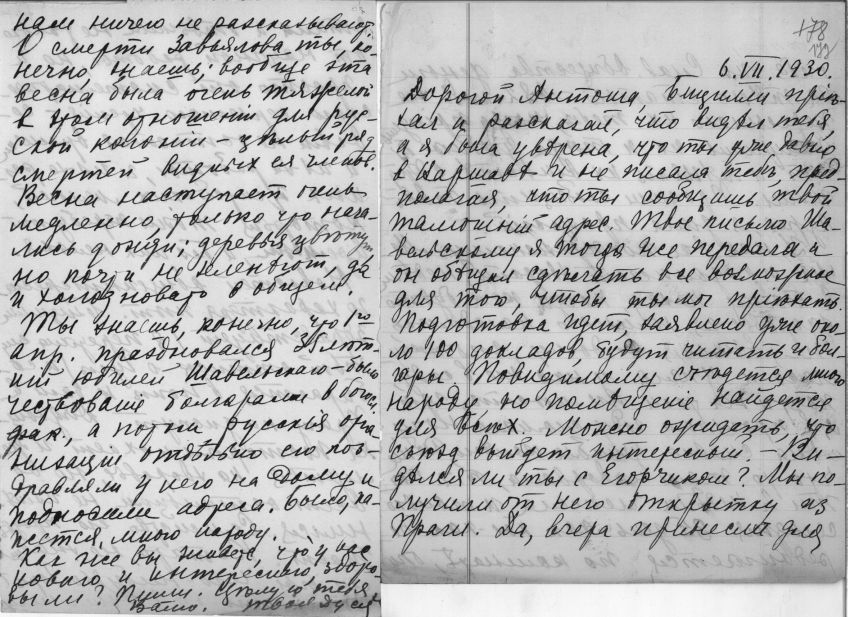 намъ ничего не разсказываютъ
О смерти Завьялова ты, ко-
нечно, знаешь; вообще эта
весна была очень тяжелой
в этом отношении для рус-
ской колонии – цѣлый ряд
смертей видных ея членов.
Весна наступает очень
медленно, только что нача-
лись дожди; деревья цвѣтут,
но почти не зеленѣют, да
и холодновато в общем.
Ты знаешь, конечно, что 1го
апр. праздновался 35 лѣт-
ній юбилей Шавельскаго – было
чествованіе болгарами в богосл.
фак., а потом русскія орга-
низаціи отдѣльно его поз-
дравляли у него на дому и
подносили адреса. Было, ка-
жется, много народу.
Как же вы живете, что у вас
новаго и интереснаго, здоро-
вы ли? Пиши. Цѣлую тебя
твоя Дуся
178
199
6.VII.1930.
Дорогой Антоша, Бицилли пріѣ-
хал и разсказал, что видѣл тебя,
а я была увѣрена, что ты уже давно
в Варшавѣ и не писала тебѣ, пред-
полагая, что ты сообщишь твой
тамошній адрес. Твое письмо Ша-
вельскому я тогда же передала и
он обѣщал сдѣлать все возможное
для того, чтобы ты мог пріѣхать.
Подготовка идет, заявлено уже око-
ло 100 докладов, будут читать и бол-
гары. Повидимому съѣдется много
народу, но помѣщеніе найдется
для всѣх. Можно ожидать, что
съѣзд выйдет интересный. – Ви-
дѣлся ли ты с Егорчиком? Мы по-
лучили от него открытку из
Праги. Да, вчера принесли для